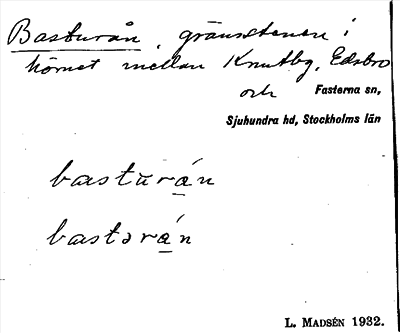 Basturån, gränsstenen i
hörnet mellan Knutby, Edsbro
och Fasterna sn,
Sjuhundra hd, Stockholms län
basturá̱n
bastərá̱n
L. MADSÉN 1932.